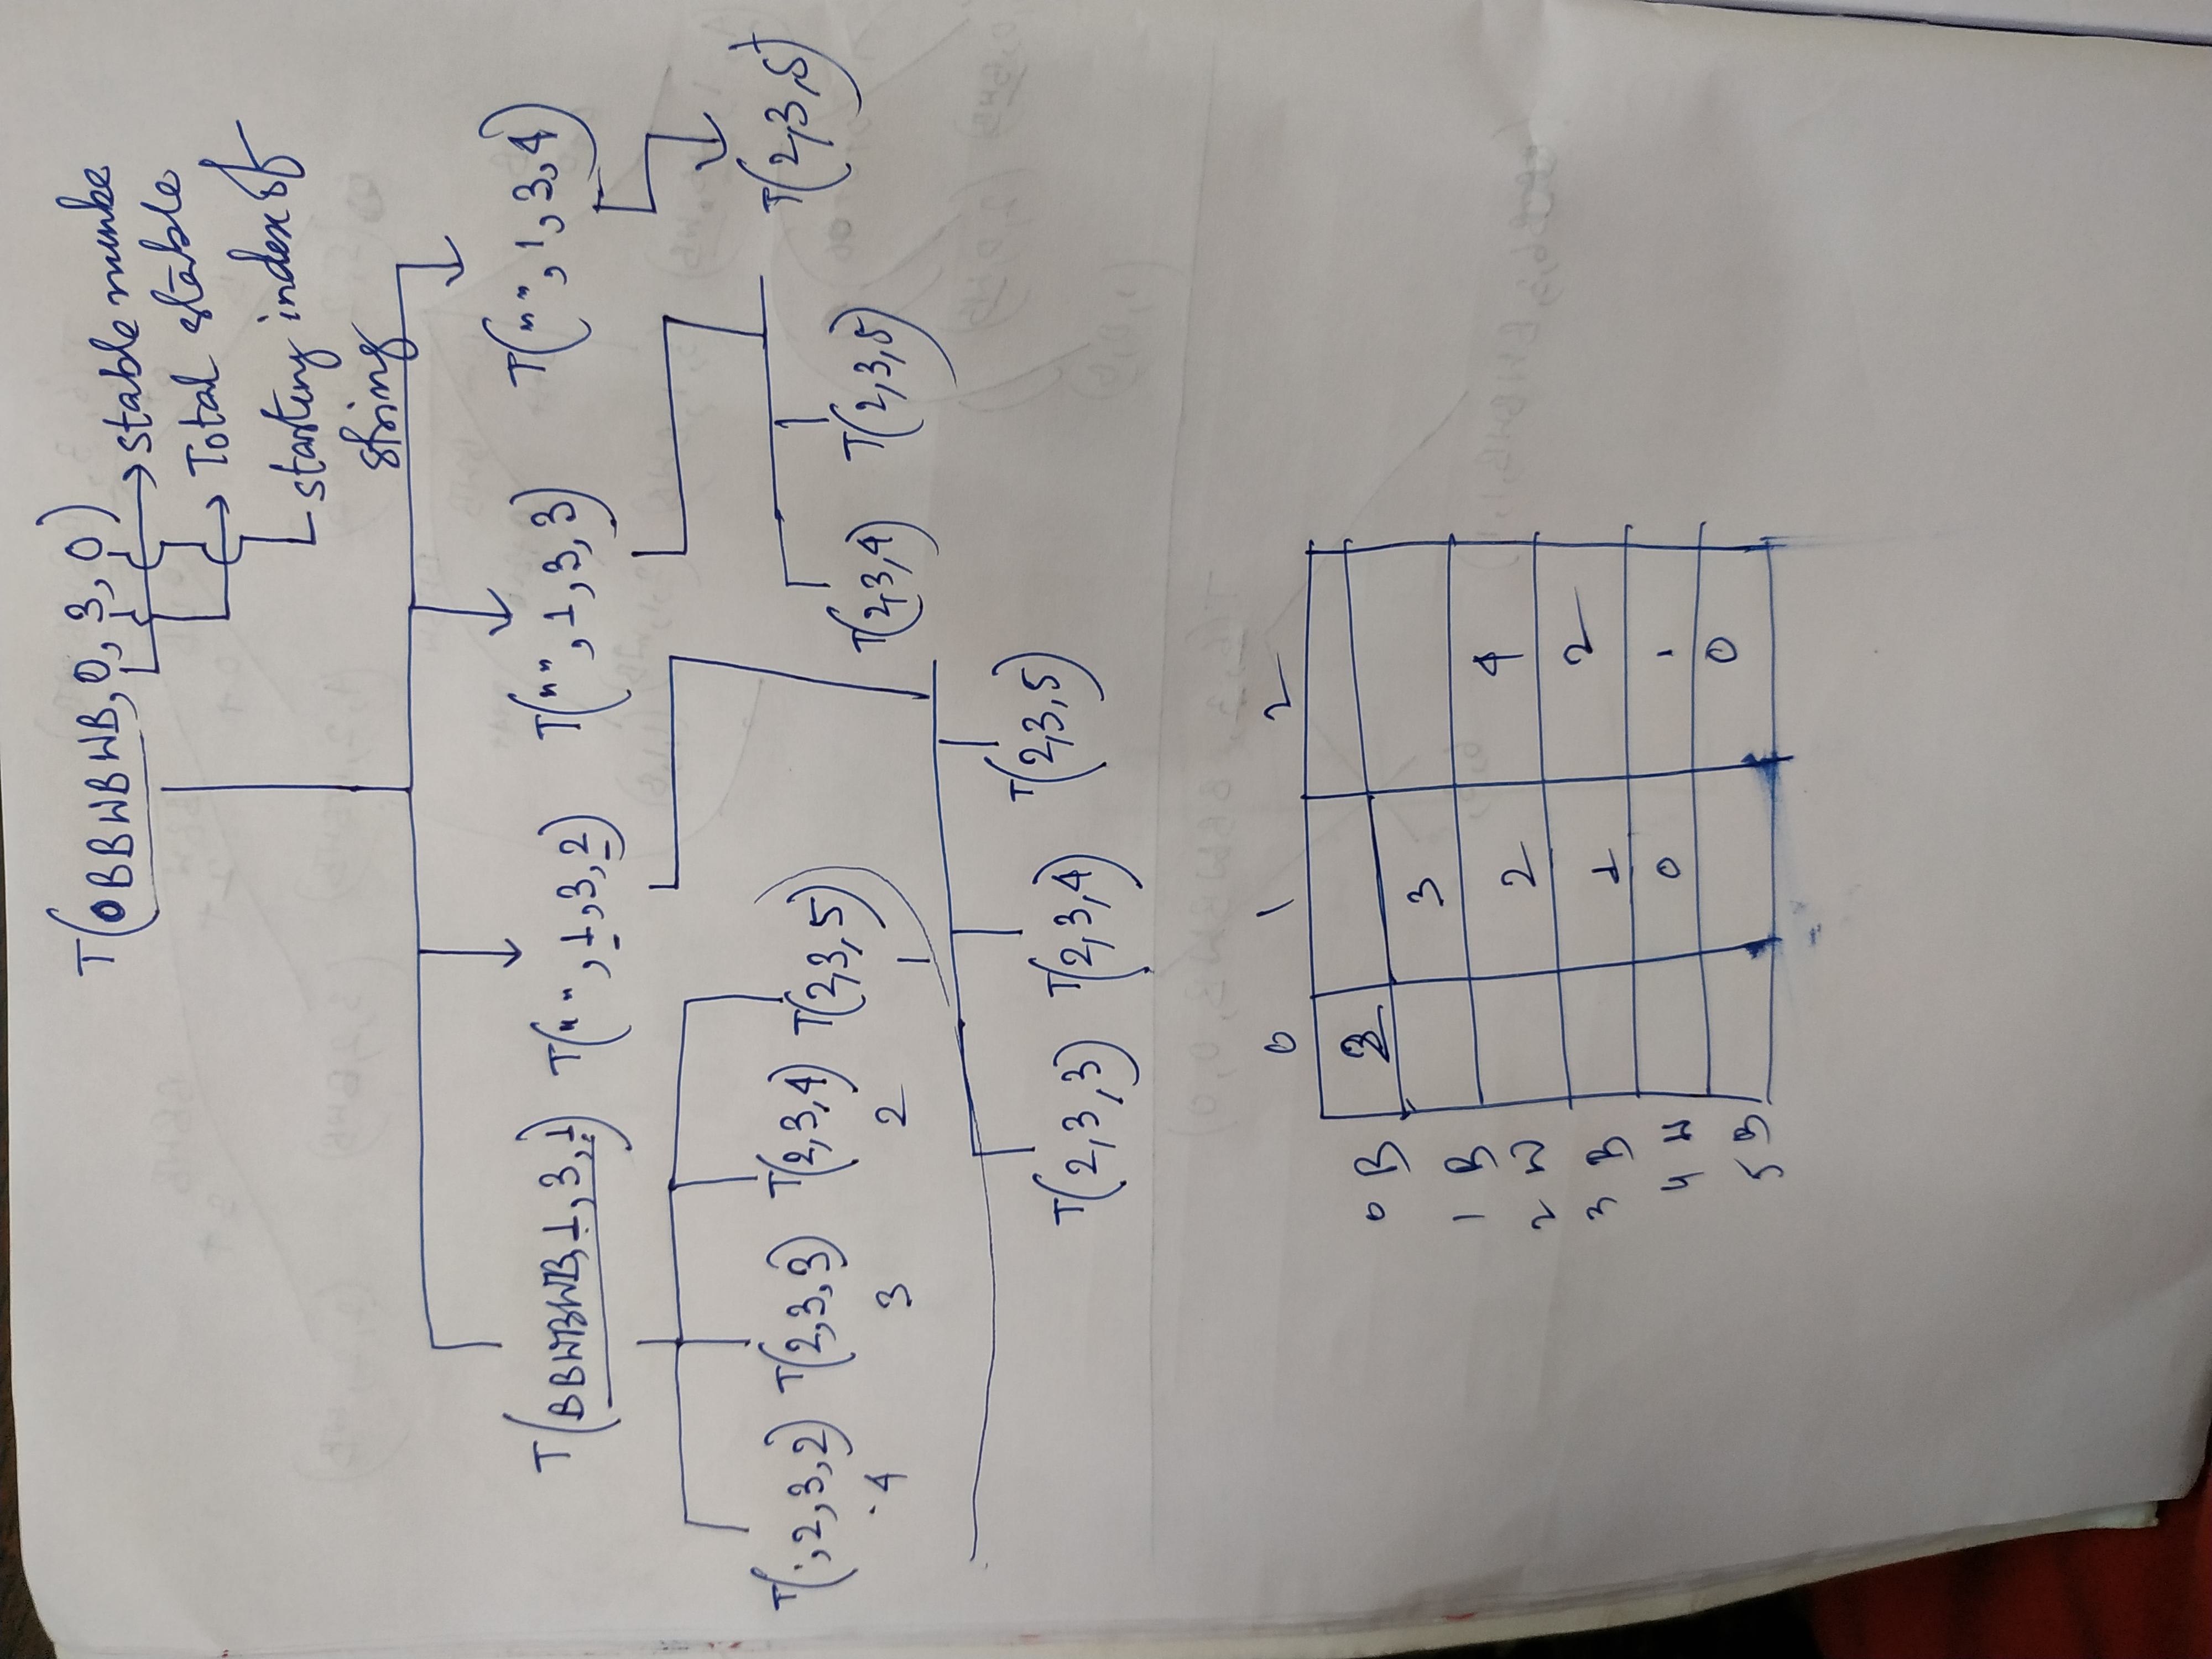 T(0BBWBWB, 0, 3, 0)
stable numbe
Total stable
starting index of
string
T(BBWBWB, 1, 3, 1) T(" ", 1, 3, 2) T(" ", 1, 3, 3) T(" ", 1, 3, 4)
T(, 2, 3, 2) T(2, 3, 3) T(2, 3, 4) T(2, 3, 5)
4 3 2 1
T(2, 3, 4) T(2, 3, 5) T(2, 3, 5)
T(2, 3, 3) T(2, 3, 4) T(2, 3, 5)
0 1 2
0 B
1 B 3
2 W 2 4
3 B 1 2
4 W 0 1
5 B 0